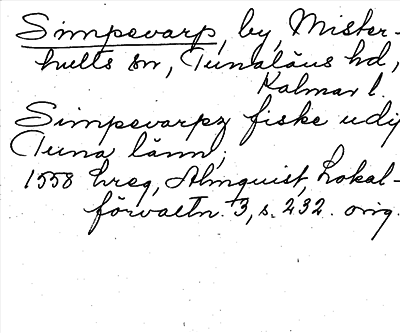 Simpevarp, by, Mister-
hults sn, Tunaläns hd,
Kalmar l.
Simpevarpz fiske udj
Tuna länn,
1558 hreg, Almquist, Lokal-
förvaltn. 3, s. 232. orig.